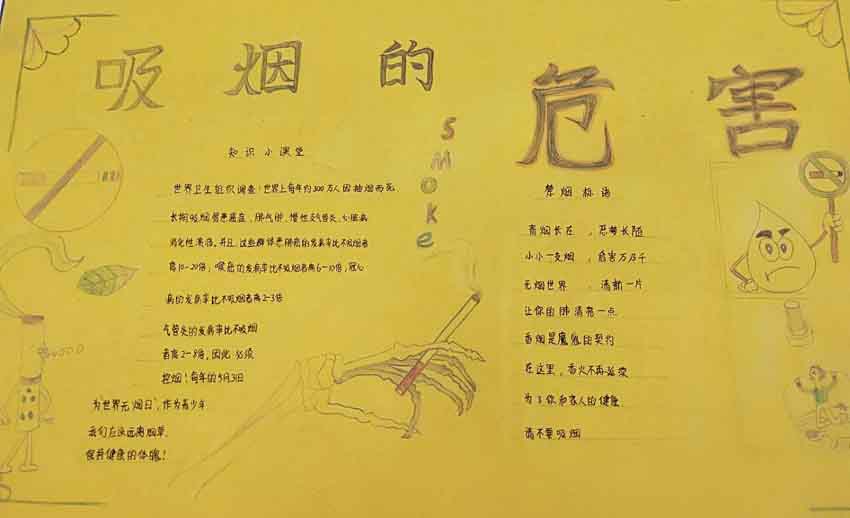 吸烟的危害
smoke
知识小课堂
世界卫生组织调查:世界上每年约300万人因抽烟而死
长期吸烟易患癌症,肺气肿,慢性支气管炎,心脏病
消化性溃疡,并且,这些群体患肺癌的发病率比不吸烟者
高10-20倍,喉癌的发病率比不吸烟者高6-10倍,冠心
病的发病率比不吸烟者高2-3倍
气管炎的发病率比不吸烟
者高2-8倍,因此 必须
控烟!每年的5月31日
为"世界无烟日",作为青少年
我们应该远离烟草
保持健康的体魄!
禁烟标语
青烟长在,恶梦长随
小小一支烟,危害万万千
无烟世界,清新一片
让你的肺清亮一点
香烟是魔鬼的契约
在这里,香火不再延续
为了你和家人的健康
请不要吸烟